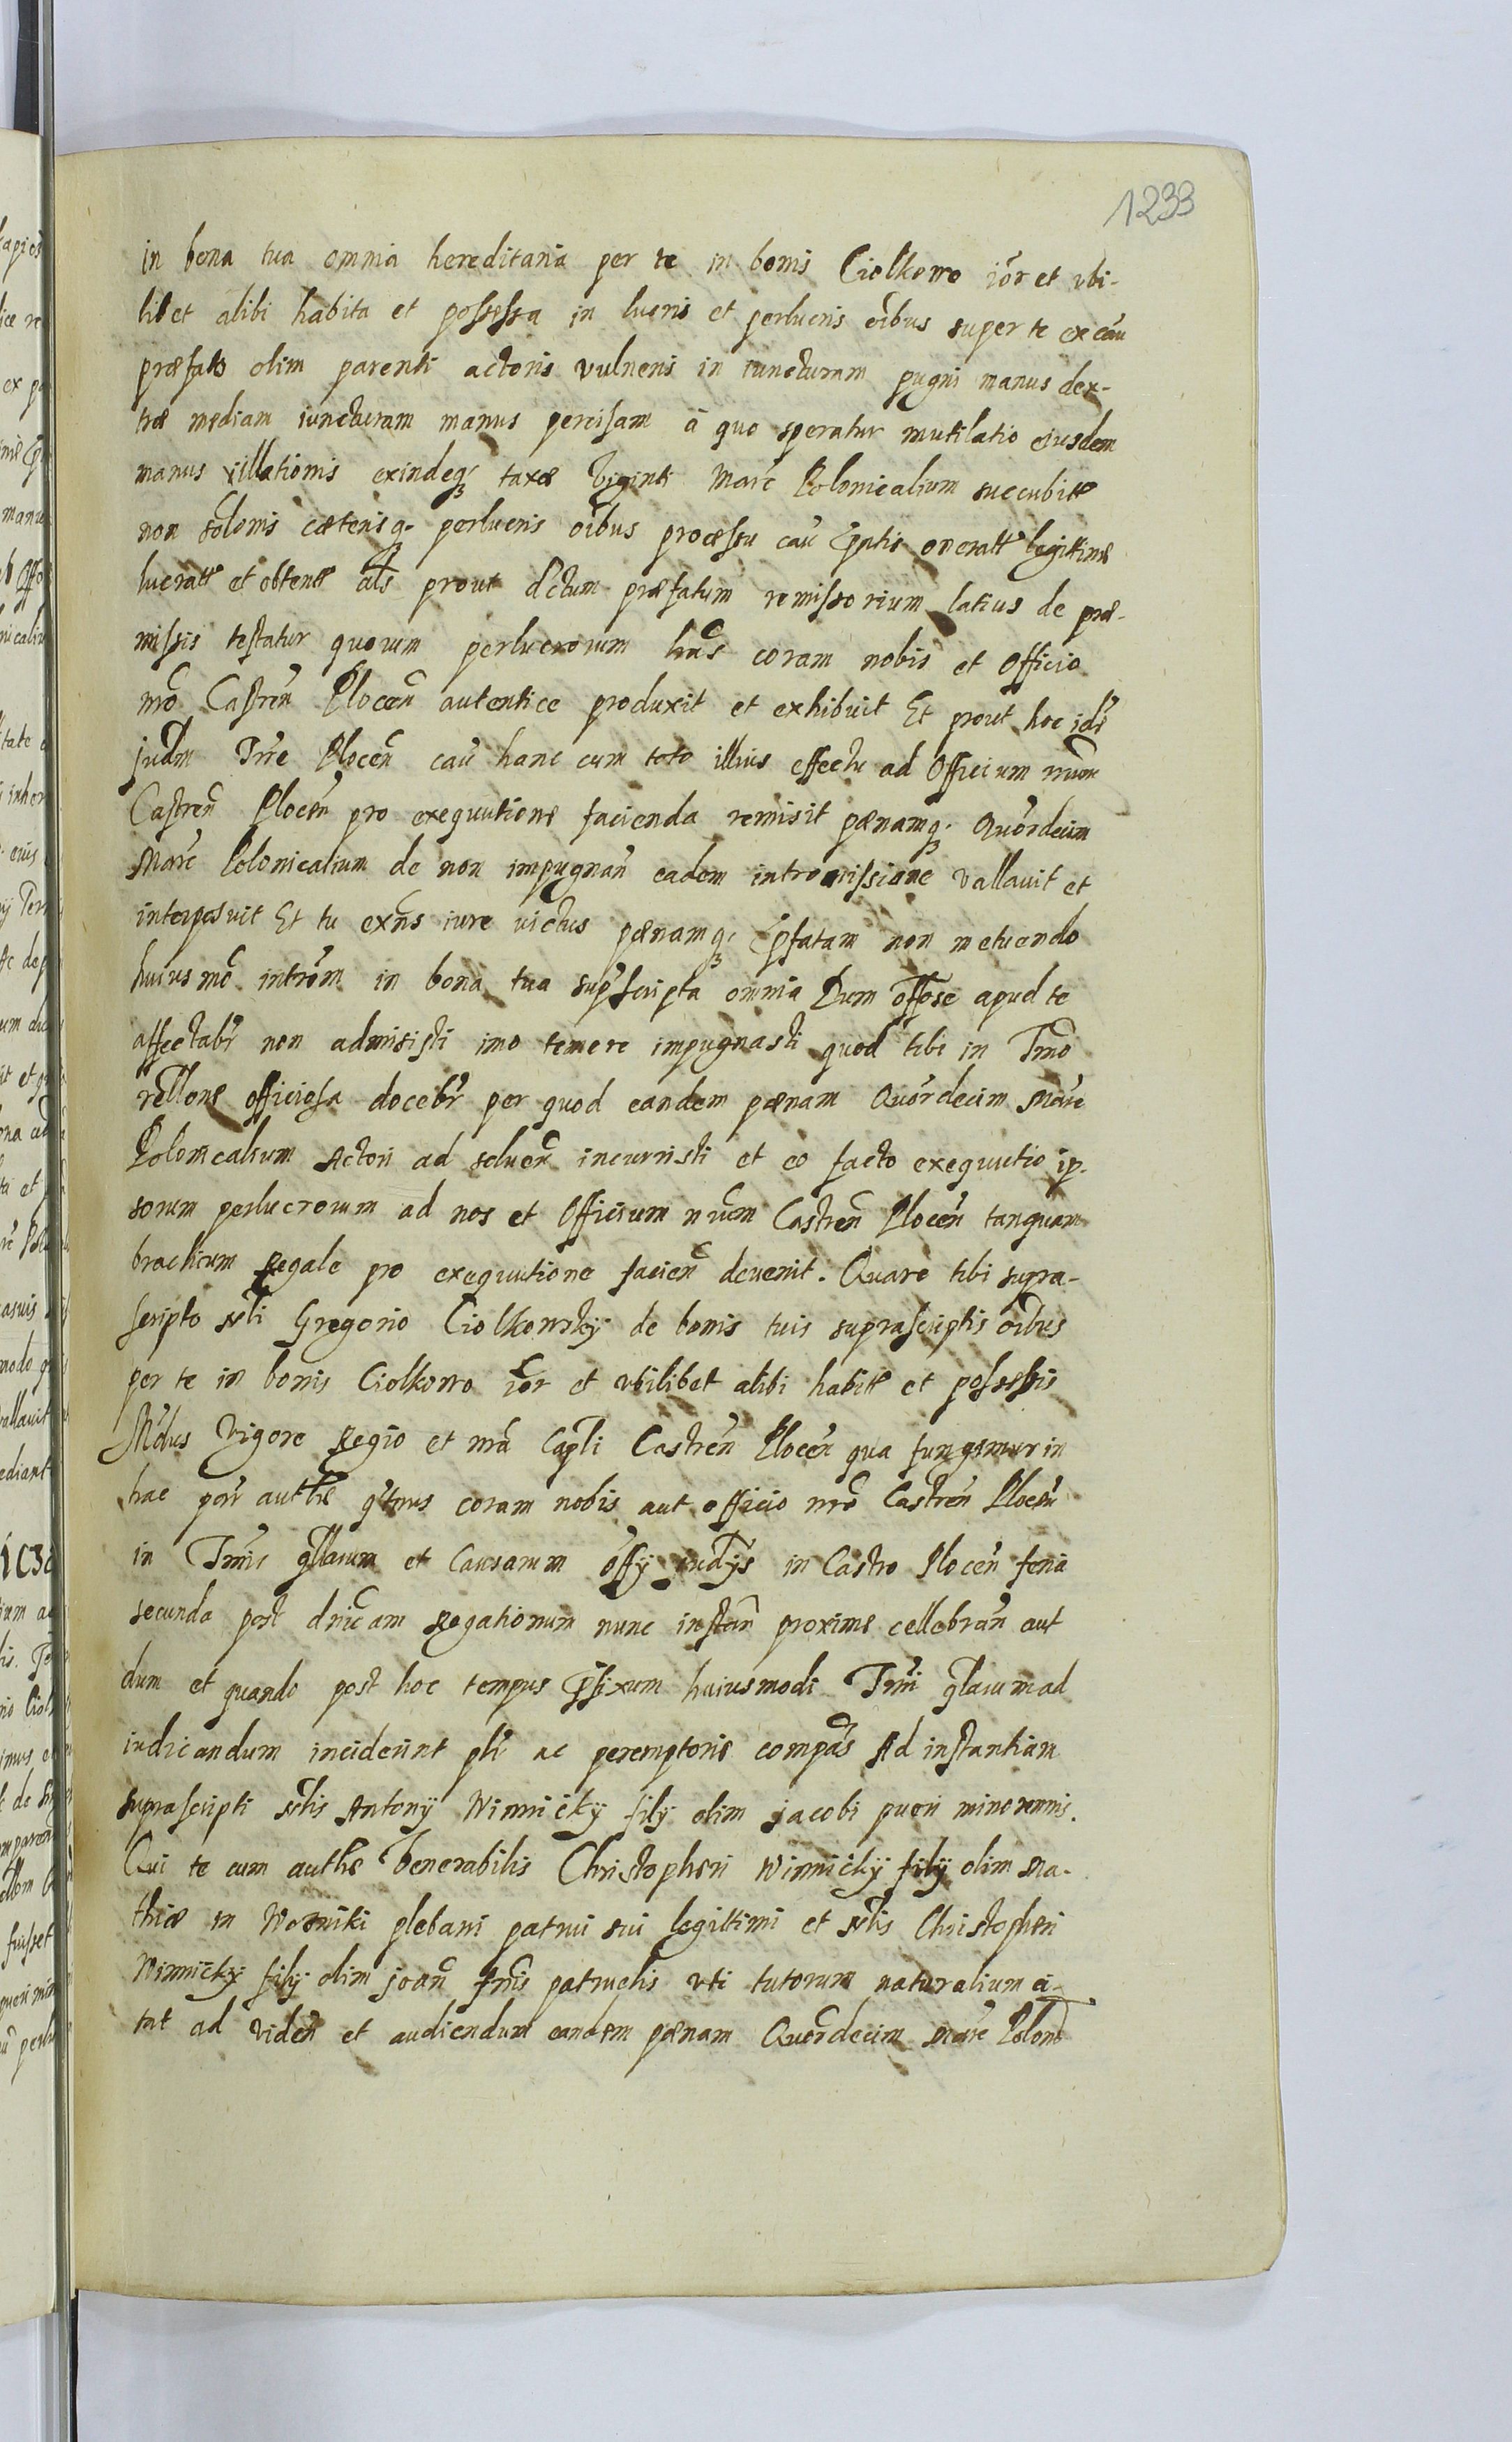 1233
in bona tua omnia hereditaria per te in bonis Ciolkowo iōr et vbi-
libet alibi habita et possessa in lucris et perlucris oībus super te ex cāu
præfato olim parenti actoris vulneris in iuncturam pugni manus dex-
træ mediam iuncturam manus percisam à quo speratur mutilatio eiusdem
manus illationis exindeq; taxæ Viginti Marc Polonicalium succubitæ
non sōlonis cæterisq; perlucris oībus processu cāu p̄ntis oneratt legittime
lucratt et obtentt als prout dctum præfatum remissorium latius de præ-
missis testatur quorum perlucrorum lrās coram nobis et Officio
nrō Castrēn Plocēn autentice produxit et exhibuit Et prout hoc idē
judm Trre Plocēn cāu hanc cum toto illius effectu ad Officium nrūm
Castrēn Plocēn pro exequutione facienda remisit pænamq; Quōrdecim
Marc Polonicalium de non impugnān eadem intromissione vallauit et
interposuit Et tu exn̄s iure victus pænamq; p̄fatam non metuendo
huiusmō intrōm in bona tua supscripta omnia Dum offōse apud te
affectabr non admisisti imo temere impugnasti quod tibi in Tmō
rellone officiosa docebr per quod eandem pænam Quōrdecim Marc
Polonicalium Actori ad soluēn incurristi et eo facto exequutio ip-
sorum perlucrorum ad nos et Officium nrūm Castrēn Plocēn tanquam
brachium Regale pro exequutione faciēn deuenit. Quare tibi supra-
scripto Nli Gregorio Ciolkowsky de bonis tuis suprascriptis oībus
per te in bonis Ciolkowo iōr et vbilibet alibi habitt et possessis
Mdmus Vigore Regio et nrā Capli Castrēn Plocēn qua fungimur in
hac parī authe qtnus coram nobis aut officio nrō Castrēn Plocēn
in Tmis qllarum et Causarum offy iudys in Castro Plocēn feria
secunda post dnicam Rogationum nunc instān proxime cellebrān aut
dum et quando post hoc tempus p̄fixum huiusmodi Tmi qlarum ad
iudicandum inciderint plr ac peremptorie compās Ad instantiam
suprascripti Nlis Antony Winnicky fily olim jacobi pueri minorennis.
Qui te cum authe Venerabilis Christopheri Winnicky fily olim Ma-
thiæ in Worniki plebani patrui sui legittimi et Nlis Christopheri
Winnicky fily olim joān frīs patruelis vti tutorum naturalium ci-
tat ad vidēn et audiendum eandem pænam Quōrdecim Marc Polonō